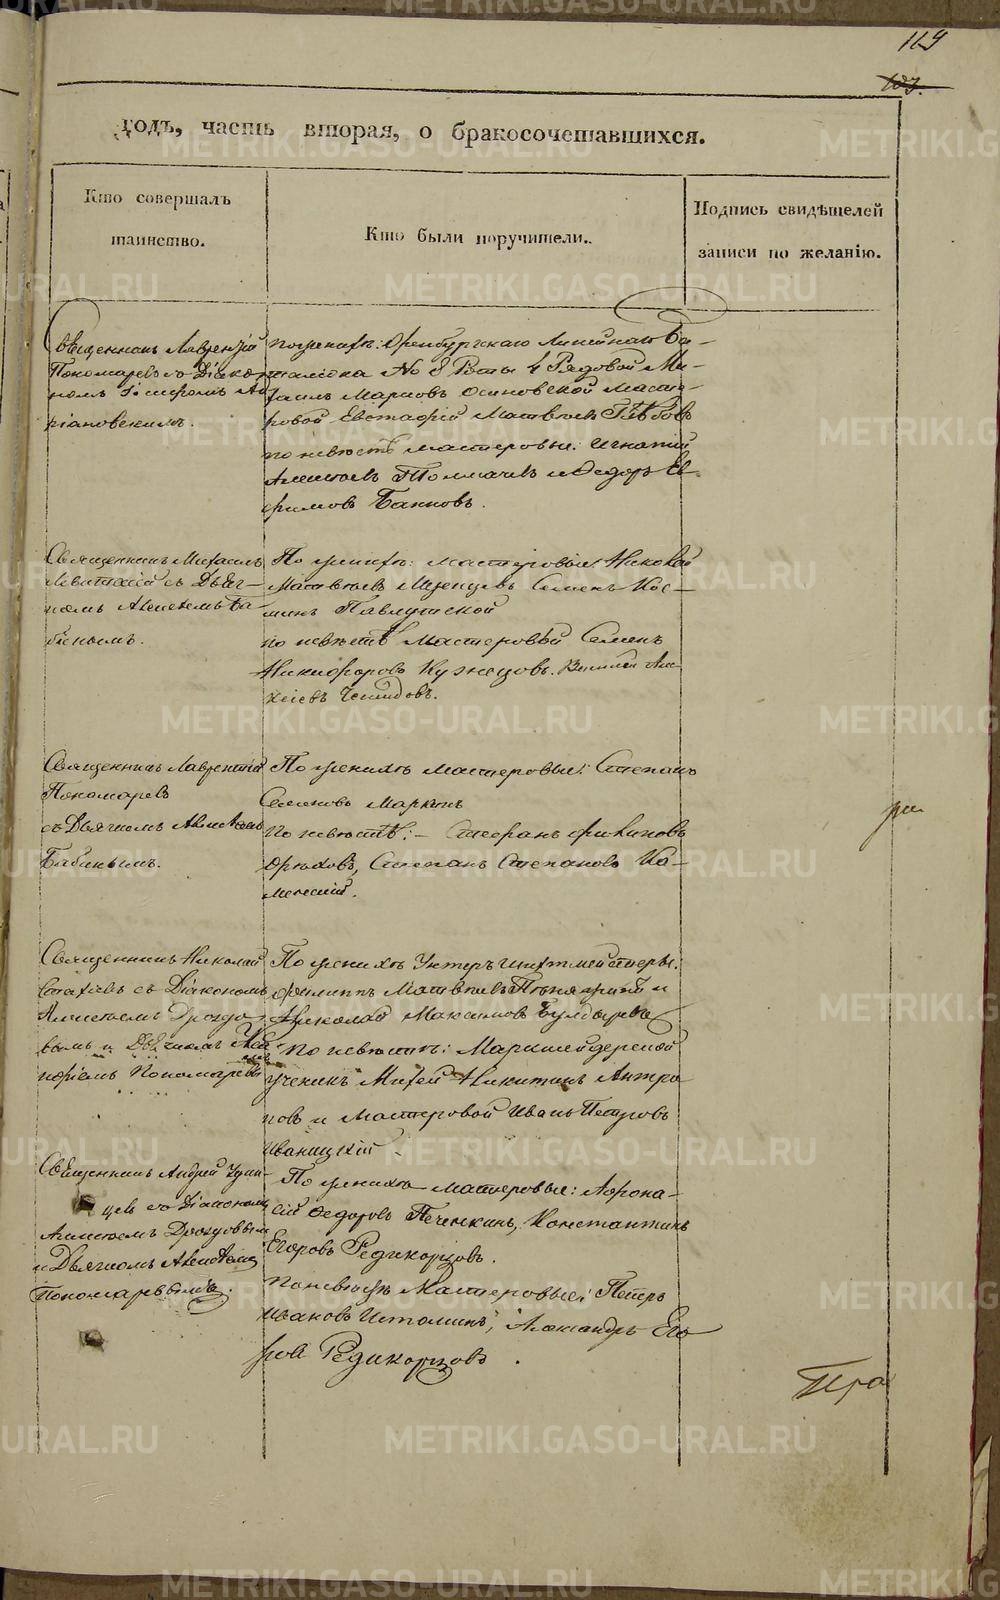 119
годъ, часть вторая, о бракосочетавшихся.
Кто совершалъ
таинство.
Кто были поручители.
Подпись свидѣтелей
записи по желанію.
Священникъ Лаврентій
Пономаревъ съ Діако-
номъ
ріановскимъ.
по женихѣ: Оренбургскаго Линейнаго Ба-
таліона No 8 Роты 4 Рядовой Ми-
хаилъ Марковъ Осиновской Масте-
ровой Евстафій Матвѣевъ Глѣбовъ
по невѣстѣ мастеровые: Игнатій
Алексѣевъ Толмачевъ и Ѳедоръ Еѳ-
имовъ Банновъ.
Священникъ Михаилъ
Левитскій съ Дьяч-
комъ Алексѣемъ Ба-
бинымъ.
По женихѣ: мастеровые Николай
Матвѣевъ Мезенцевъ Семенъ Кос-
минъ Павлушской
по невѣстѣ Мастеровый Семенъ
Никифоровъ Кузнецовъ.
Священникъ Лаврентій
Пономаревъ
съ Дьячкомъ Алексѣемъ
Бабинымъ.
По женихѣ мастеровые: Степанъ
Семеновъ Маркинъ
По невѣстѣ: – Стефанъ
Орѣховъ, Степанъ Степановъ Ка-
менскій.
Священникъ Николай
съ Діакономъ
Алексѣемъ Дроздо-
вымъ и Дьячкомъ
Пономаревымъ
По женихѣ Унтеръ шихтмейстеры:
Филиппъ Матвѣевъ и
Николай Максимовъ Булдыревъ
По невѣстѣ: Маркшейдерской
ученикъ Михей Никитинъ Антро-
повъ и Мастеровой Иванъ Петровъ
Иваницкій
Священникъ Андрей
съ Діакономъ
Алексѣемъ Дроздовымъ
и Дьячкомъ Алексѣемъ
Пономаревымъ.
По женихѣ мастеровые: Афона-
сій Ѳедоровъ Печенкинъ, Константинъ
Егоровъ Редикорцовъ.
По невѣстѣ Мастеровые: Петръ
Ивановъ Истоминъ, Александръ Его-
ровъ Редикорцовъ.
METRIKI.GASO-URAL.RU